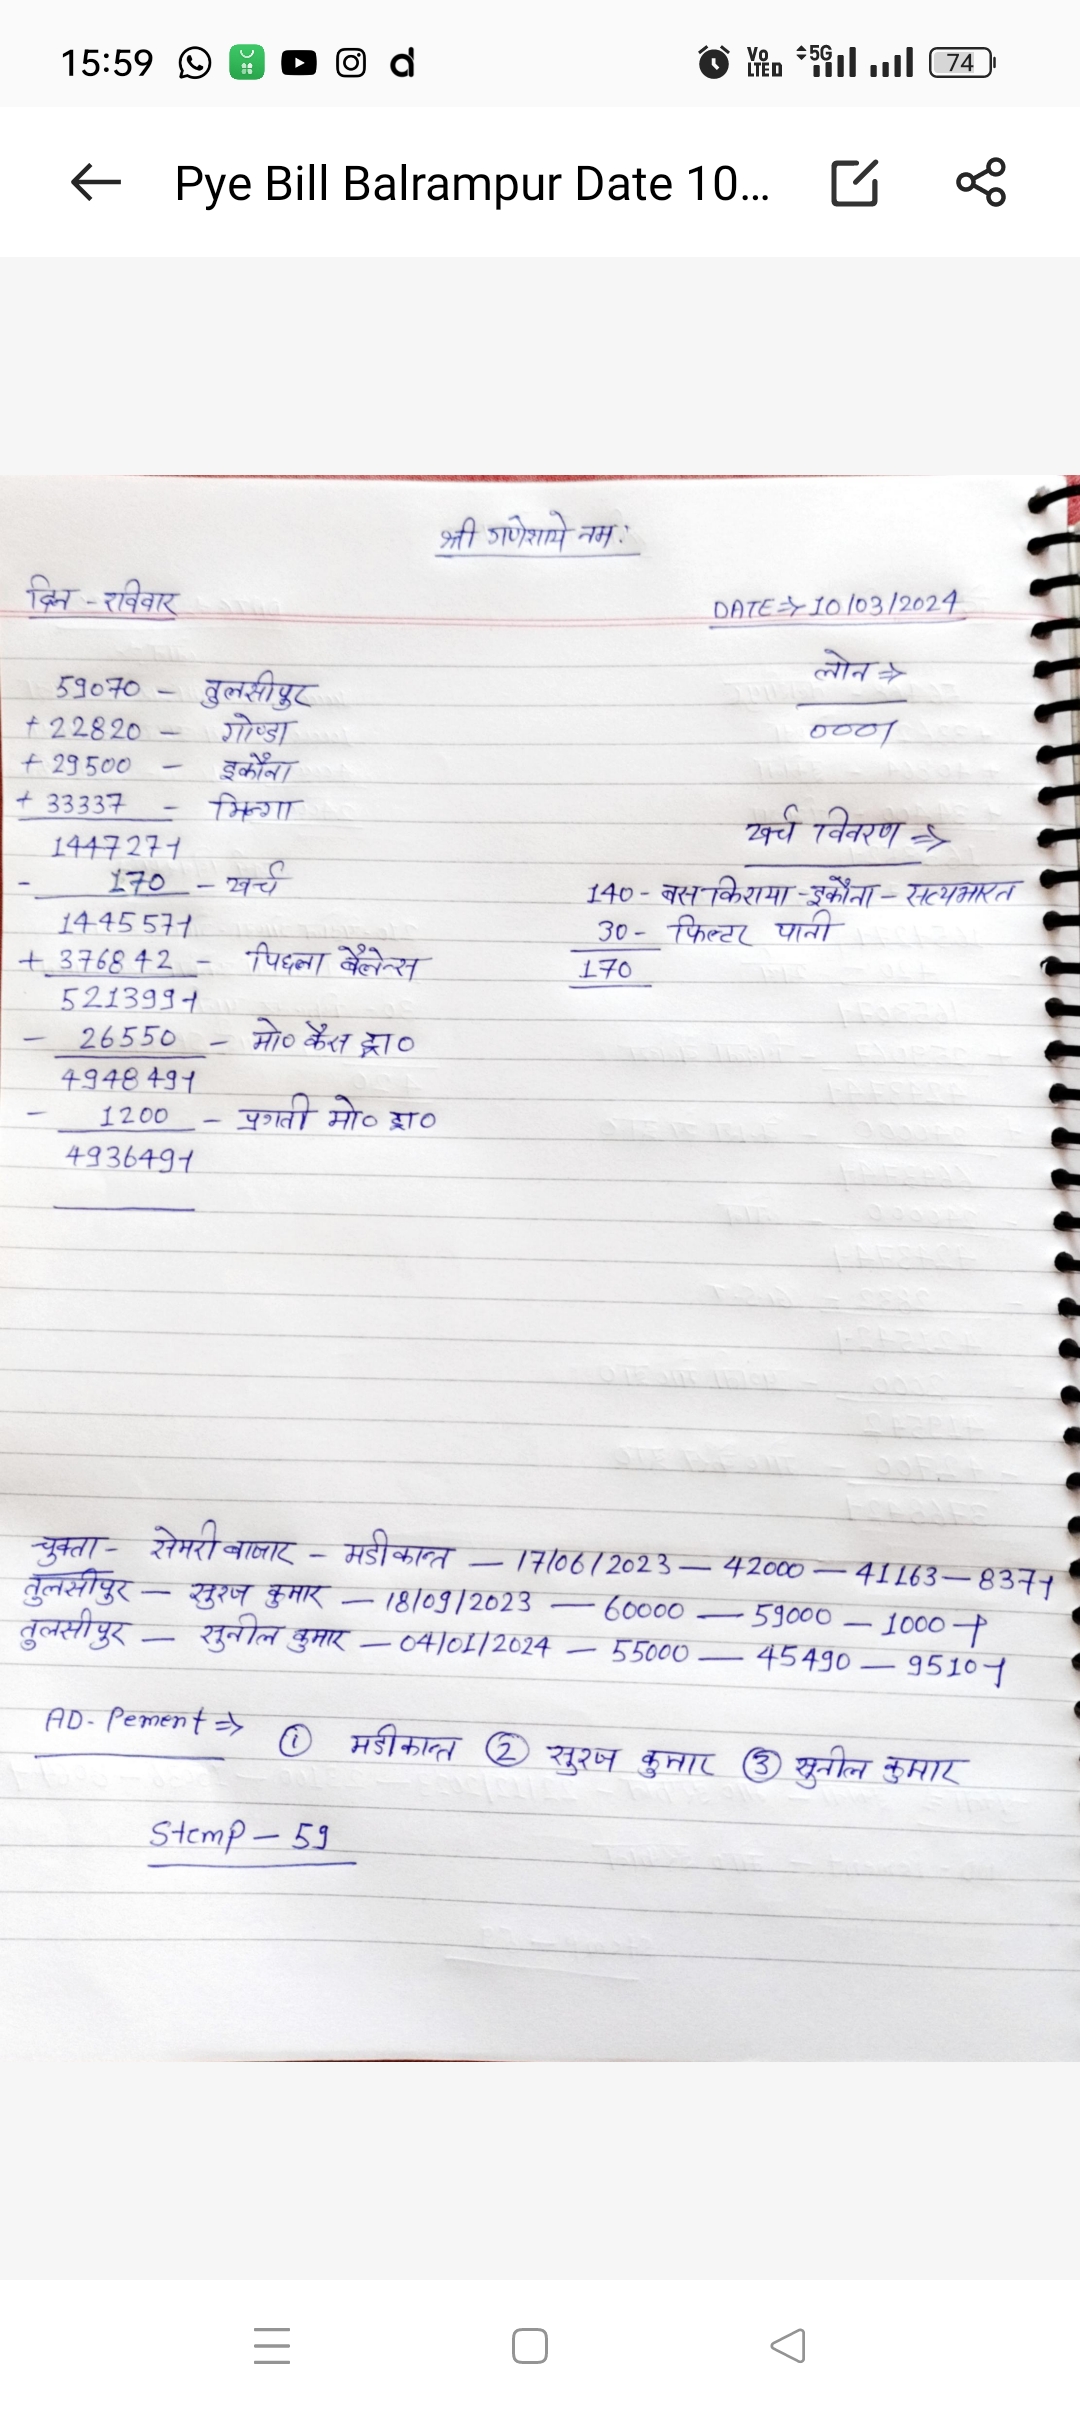 15:59 Vo LTE 5G 74
Pye Bill Balrampur Date 10...
श्री गणेशाये नमः
दिन - रविवार
DATE⇒ 10/03/2024
59070 - तुलसीपुर
+ 22820 - गोण्डा
+ 29500 - इकौना
+ 33337 - भिन्गा
144727/-
- 170 - खर्च
144557/-
+ 376842 - पिछला बैलेन्स
521399/-
- 26550 - मो० कैस द्वा०
494849/-
- 1200 - प्रगती मो० द्वा०
493649/-
लोन ⇒
000/
खर्च विवरण ⇒
140 - बस किराया - इकौना - सत्यभारत
30 - फिल्टर पानी
170
चुक्ता - सेमरी बाजार - मडीकान्त - 17/06/2023 - 42000 - 41163 - 837/-
तुलसीपुर - सुरज कुमार - 18/09/2023 - 60000 - 59000 - 1000/-
तुलसीपुर - सुनील कुमार - 04/01/2024 - 55000 - 45490 - 9510/-
AD- Pement ⇒ ① मडीकान्त ② सुरज कुमार ③ सुनील कुमार
Stemp - 59